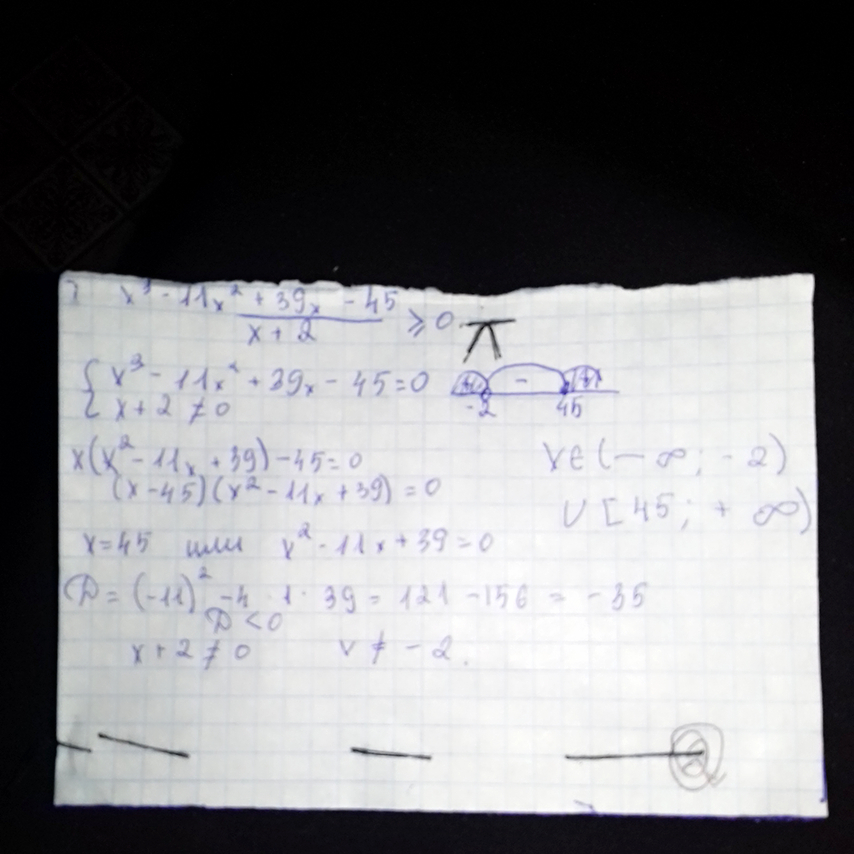 x³ - 11x² + 39x - 45
x + 2
≥ 0
{ x³ - 11x² + 39x - 45 = 0
x + 2 ≠ 0
+ - +
-2 45
x(x² - 11x + 39) - 45 = 0
(x - 45)(x² - 11x + 39) = 0
x = 45 или x² - 11x + 39 = 0
D = (-11)² - 4 · 1 · 39 = 121 - 156 = -35
D < 0
x + 2 ≠ 0 x ≠ -2.
x ∈ (-∞; -2)
∪ [45; +∞)